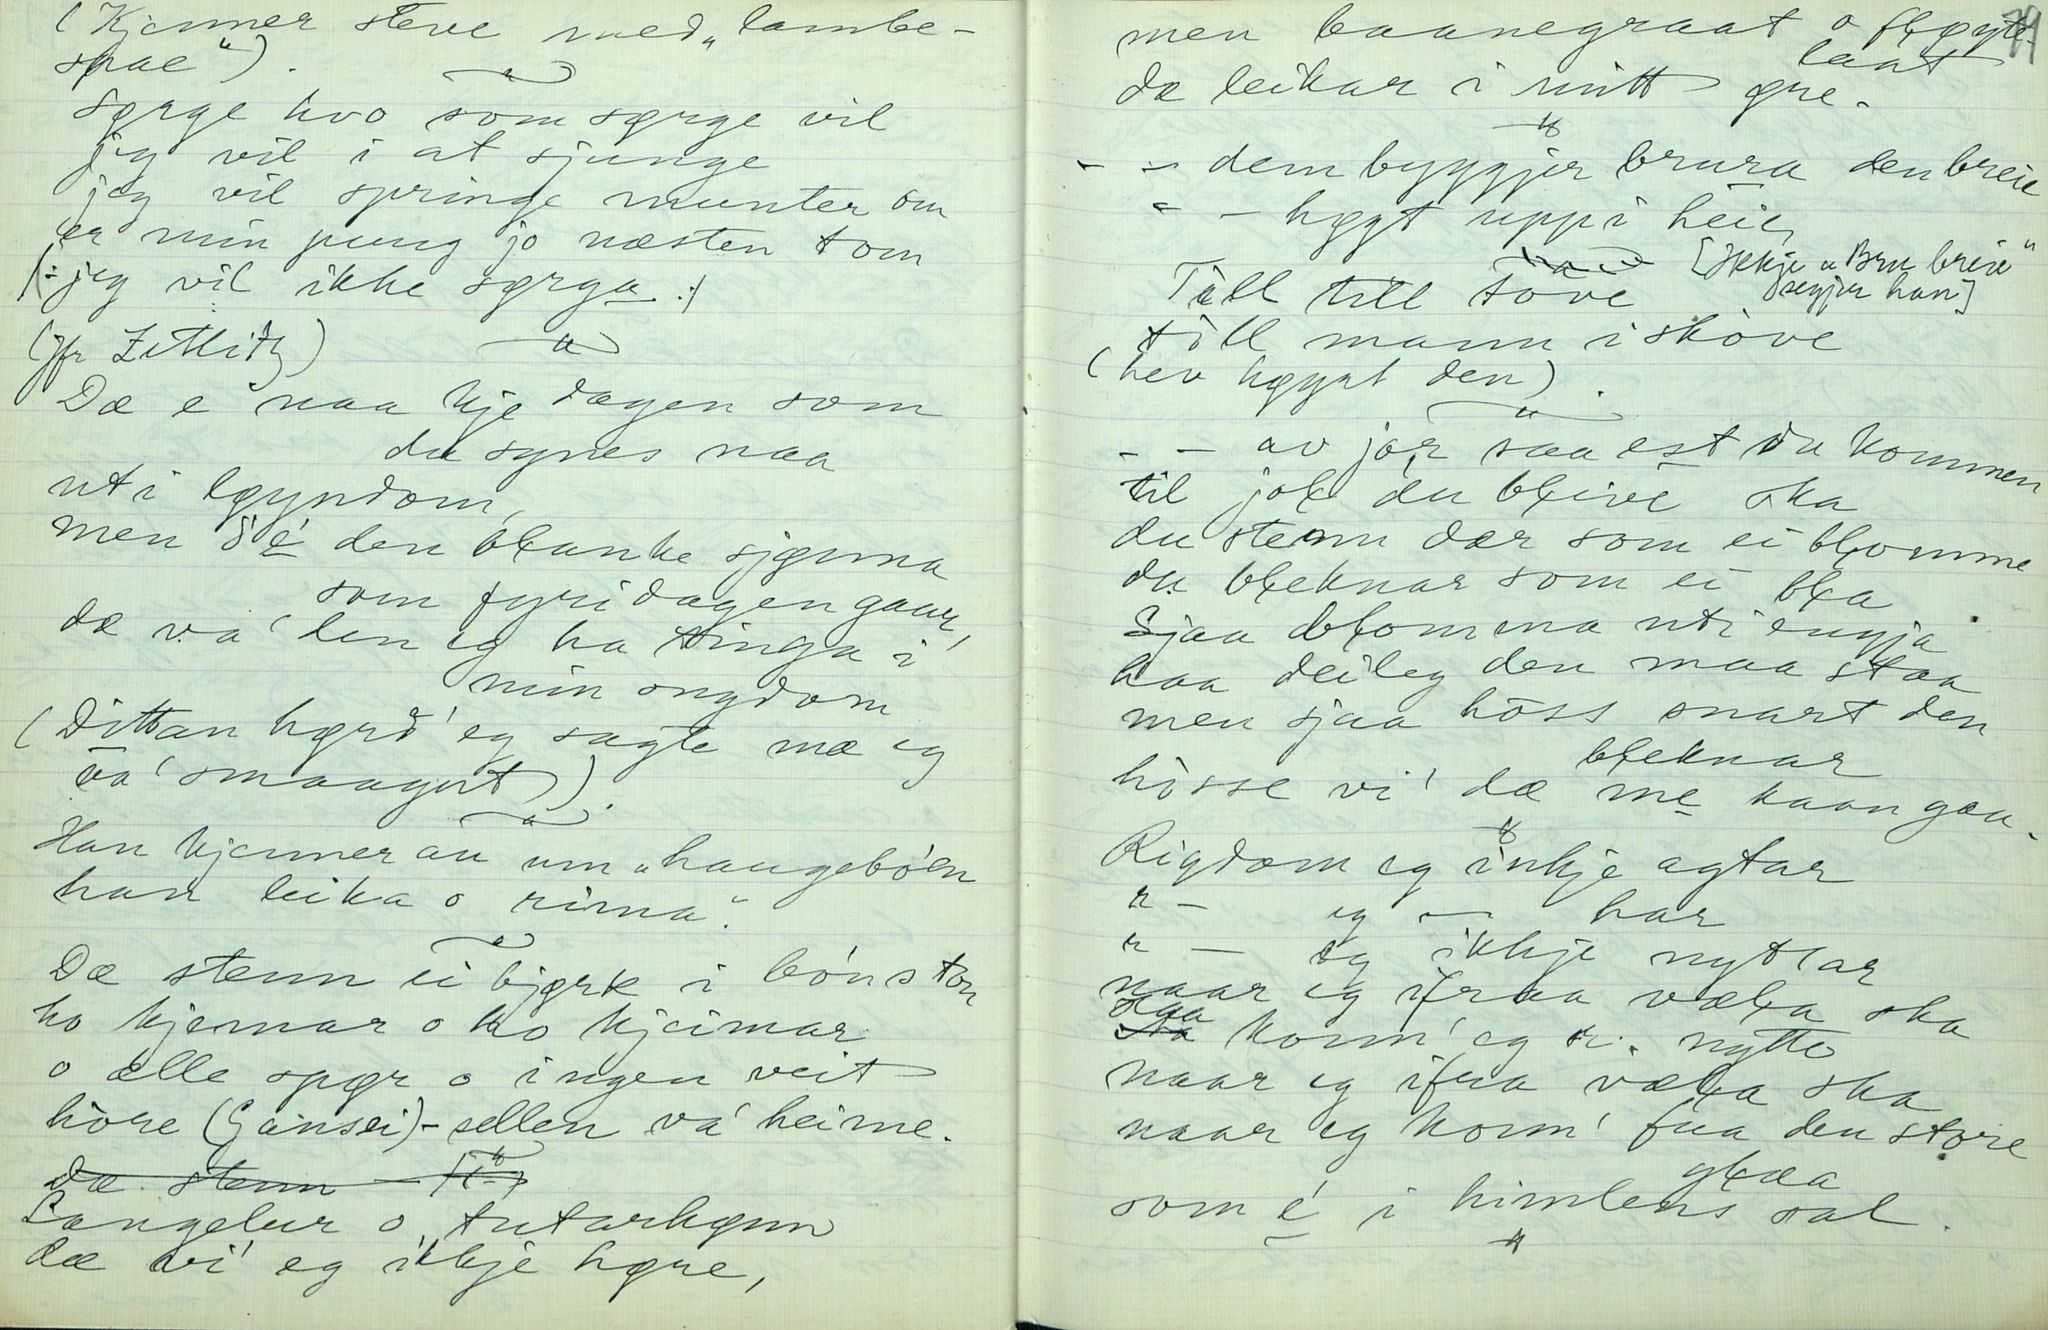 (Kjenner steve med „lambe-
spae").
Sørge hvo som sørge vil
jeg vil i at sjunge
jeg vil springe munter om
er min pung jo næsten tom
/: jeg vil ikke sørga :/
(Jfr Zetlitz)
Dæ e' naa kje dagen som
du synes naa
uti løyndom,
men d'é den blanke sjønna
som fyri dagen gaar,
dæ va' den eg ha tinga i
min ongdom
(Dittan hørd' eg sagte mæ eg
va' smaagut).
Han kjenner au um „haugebóen
han leika o rima".
Dæ stenn ei bjørk i bónston
ho kjemar o ho kjeimar
o alle spør o ingen veit
hòre (Gånsei) - sellen va' heime.
Dæ stenn
Langelur o tutarhønn
dæ vi' eg ikkje høre,
79
men baanegraat o fløyte-
laat
dæ leikar i mitt øre.
- - dem byggjer brura den breie
- - høgt uppi heie,
[Ikkje „Bru breie"
segjer han]
Tìll tìll tòve
tìll mann i skòve
(hev høyrt den).
- - av jor saa est du kommen
til jol du bleive ska
du stenn dær som ei blomme
du bleknar som ei bla
Sjaa blomma uti engja
haa deileg den maa staa
men sjaa hòss snart den
bleknar
hòsse vi' dæ me kaan gaa.
Rigdom eg inkje agtar
" - eg - har
" - eg ikkje nyttar
naar eg ifraa væla ska
Haa konn' eg r. nytte
naar eg ifra væla ska
naar eg konn' faa den støre
glæa
som é i himlens sal.